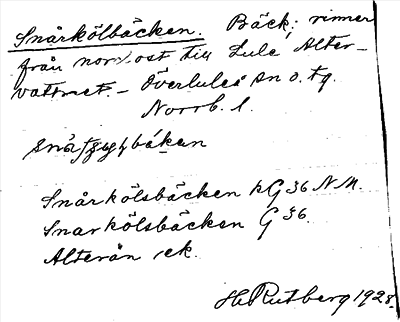 Snårkölbäcken. Bäck; rinner
från nordost till Lule Alter-
vattnet. – Överluleå sn o. tg.
Norrb. l.
Snårkölsbäcken KG 36 NM.
Snarkölsbäcken G 36.
Alterån ek.
H. Rutberg 1928.